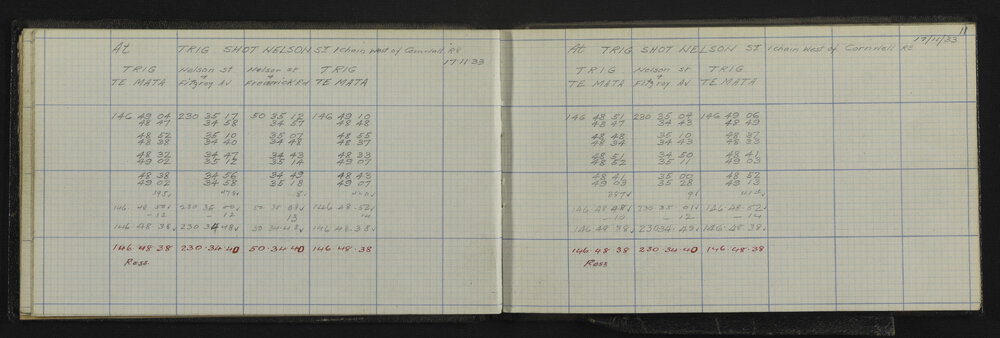 At TRIG SHOT NELSON St 1 chain West of Cornwall Rd
17·11·33
TRIG Nelson st Nelson st TRIG
+ +
TE MATA Fitzroy Av Frederick Rd TE MATA
146 49 04 230 35 17 50 35 12 146 49 10
48 47 34 58 34 57 48 48
48 52 35 10 35 07 48 55
48 38 34 40 34 48 48 37
48 37 34 47 34 43 48 33
49 02 35 12 35 14 49 07
48 38 34 56 34 49 48 43
49 02 34 58 35 18 49 07
146·48 50 230 35 00 146·48·52
-12 -12 13 14
146·48·38 230 34 48 50 34·48 146·48·38
146·48·38 230·34·40 50·34·40 146·48·38
Ross
11
17/11/33
At TRIG SHOT NELSON St 1 chain West of Cornwall Rd
TRIG Nelson st TRIG
+
TE MATA Fitzroy Av TE MATA
146 48 51 230 35 04 146 49 06
48 47 34 43 48 49
48 48 35 10 48 37
48 34 34 43 48 33
48 51 34 50 48 41
48 52 35 11 49 03
48 41 35 00 48 52
49 03 35 28 49 13
146·48 48 230·35·01 146·48·52
-10 -12 -14
146·48·38 230 34·49 146·48·38
146·48·38 230·34·40 146·48·38
Ross